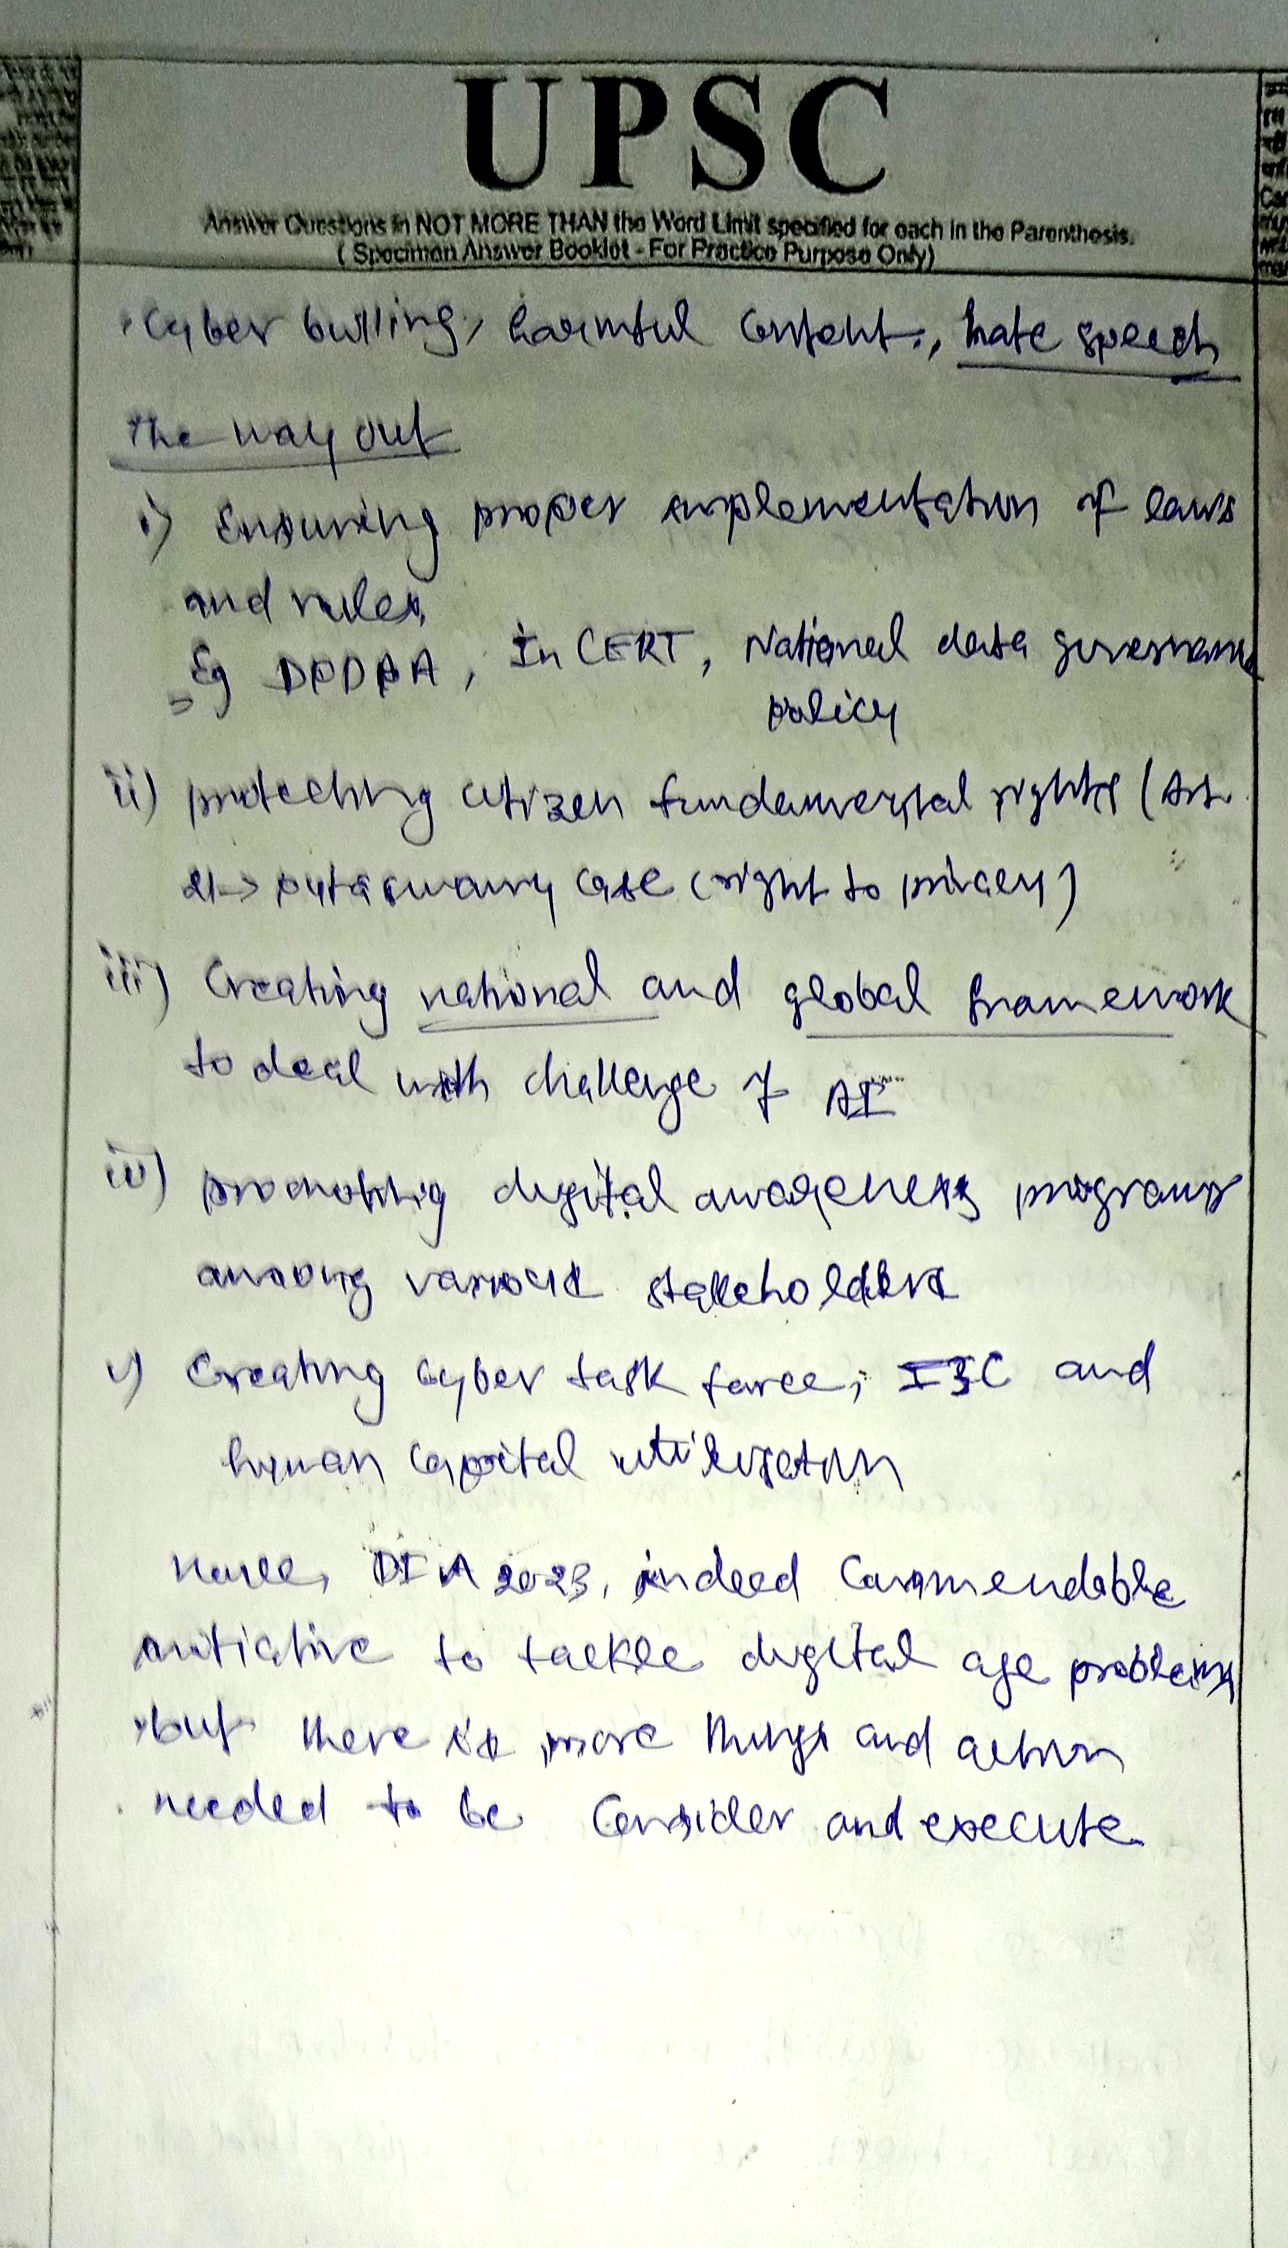 UPSC
Answer Questions in NOT MORE THAN the Word Limit specified for each in the Parenthesis.
( Specimen Answer Booklet - For Practice Purpose Only)
Cyber bulling, harmful content, hate speech
The way out
i) Ensuring proper implementation of laws
and rules,
Eg DPDPA, In CERT, National data governance
policy
ii) protecting citizen fundamental rights (Art.
21 → puttaswamy case (right to privacy)
iii) Creating national and global framework
to deal with challenge of AI
iv) promoting digital awareness programs
among various stakeholders
v) Creating cyber task force, I3C and
human capital utilisation
Hence, DIA 2023, indeed Commendable
initiative to tackle digital age problems
but there is more things and action
needed to be Consider and execute